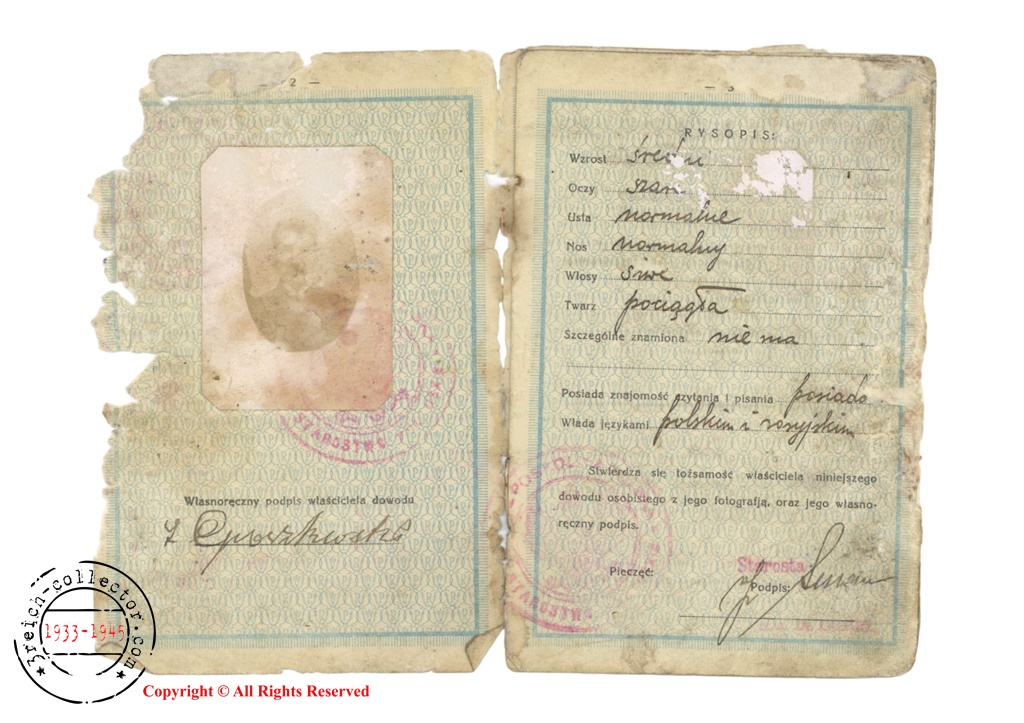 — 2 —
STAROSTWO
Własnoręczny podpis właściciela dowodu
3reich-collector.com
1933-1945
Copyright © All Rights Reserved
— 3
RYSOPIS:
Wzrost średni
Oczy
Usta normalne
Nos normalny
Włosy siwe
Twarz pociągła
Szczególne znamiona nie ma
Posiada znajomość czytania i pisania posiada
Włada językami polskim i rosyjskim
Stwierdza się tożsamość właściciela niniejszego
dowodu osobistego z jego fotografją, oraz jego własno-
ręczny podpis.
Starosta
Pieczęć:
Podpis: